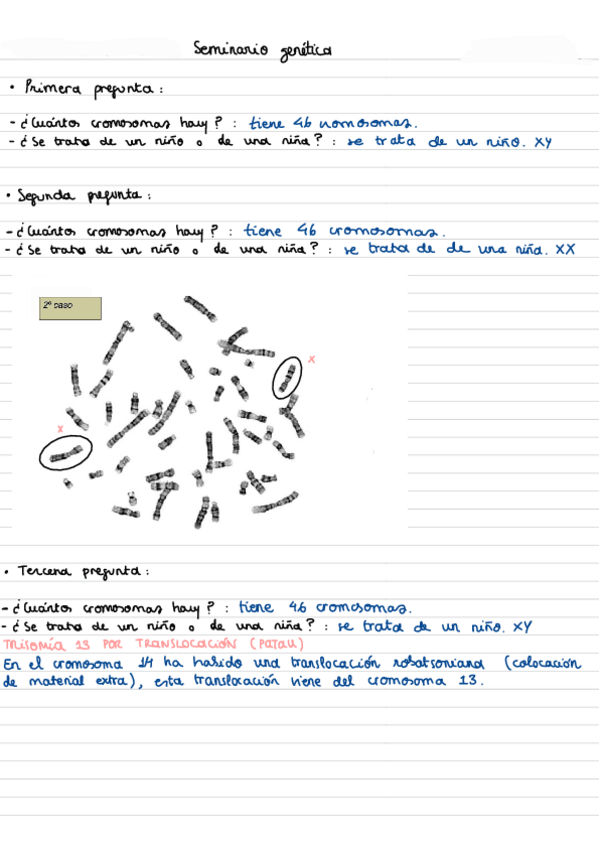 Seminario genética
• Primera pregunta:
- ¿Cuántos cromosomas hay? : tiene 46 cromosomas.
- ¿Se trata de un niño o de una niña? : se trata de un niño. XY
• Segunda pregunta:
- ¿Cuántos cromosomas hay? : tiene 46 cromosomas.
- ¿Se trata de un niño o de una niña? : se trata de de una niña. XX
2º caso
X
X
• Tercera pregunta:
- ¿Cuántos cromosomas hay? : tiene 46 cromosomas.
- ¿Se trata de un niño o de una niña? : se trata de un niño. XY
TRISOMÍA 13 POR TRANSLOCACIÓN (PATAU)
En el cromosoma 14 ha habido una translocación robatsoniana (colocación
de material extra), esta translocación viene del cromosoma 13.